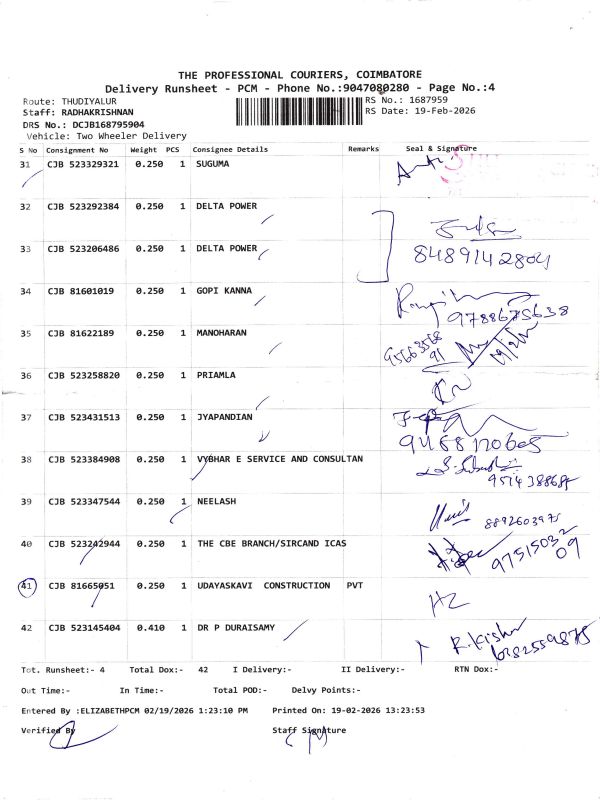 THE PROFESSIONAL COURIERS, COIMBATORE
Delivery Runsheet - PCM - Phone No.:9047080280 - Page No.:4
Route: THUDIYALUR RS No.: 1687959
Staff: RADHAKRISHNAN RS Date: 19-Feb-2026
DRS No.: DCJB168795904
Vehicle: Two Wheeler Delivery
S No Consignment No Weight PCS Consignee Details Remarks Seal & Signature
31 CJB 523329321 0.250 1 SUGUMA
32 CJB 523292384 0.250 1 DELTA POWER
33 CJB 523206486 0.250 1 DELTA POWER
8489142804
34 CJB 81601019 0.250 1 GOPI KANNA
9788675638
35 CJB 81622189 0.250 1 MANOHARAN
36 CJB 523258820 0.250 1 PRIAMLA
37 CJB 523431513 0.250 1 JYAPANDIAN
38 CJB 523384908 0.250 1 VYBHAR E SERVICE AND CONSULTAN
39 CJB 523347544 0.250 1 NEELASH
8892603975
40 CJB 523242944 0.250 1 THE CBE BRANCH/SIRCAND ICAS
41 CJB 81665051 0.250 1 UDAYASKAVI CONSTRUCTION PVT
42 CJB 523145404 0.410 1 DR P DURAISAMY
Tot. Runsheet:- 4 Total Dox:- 42 I Delivery:- II Delivery:- RTN Dox:-
Out Time:- In Time:- Total POD:- Delvy Points:-
Entered By :ELIZABETHPCM 02/19/2026 1:23:10 PM Printed On: 19-02-2026 13:23:53
Verified By Staff Signature